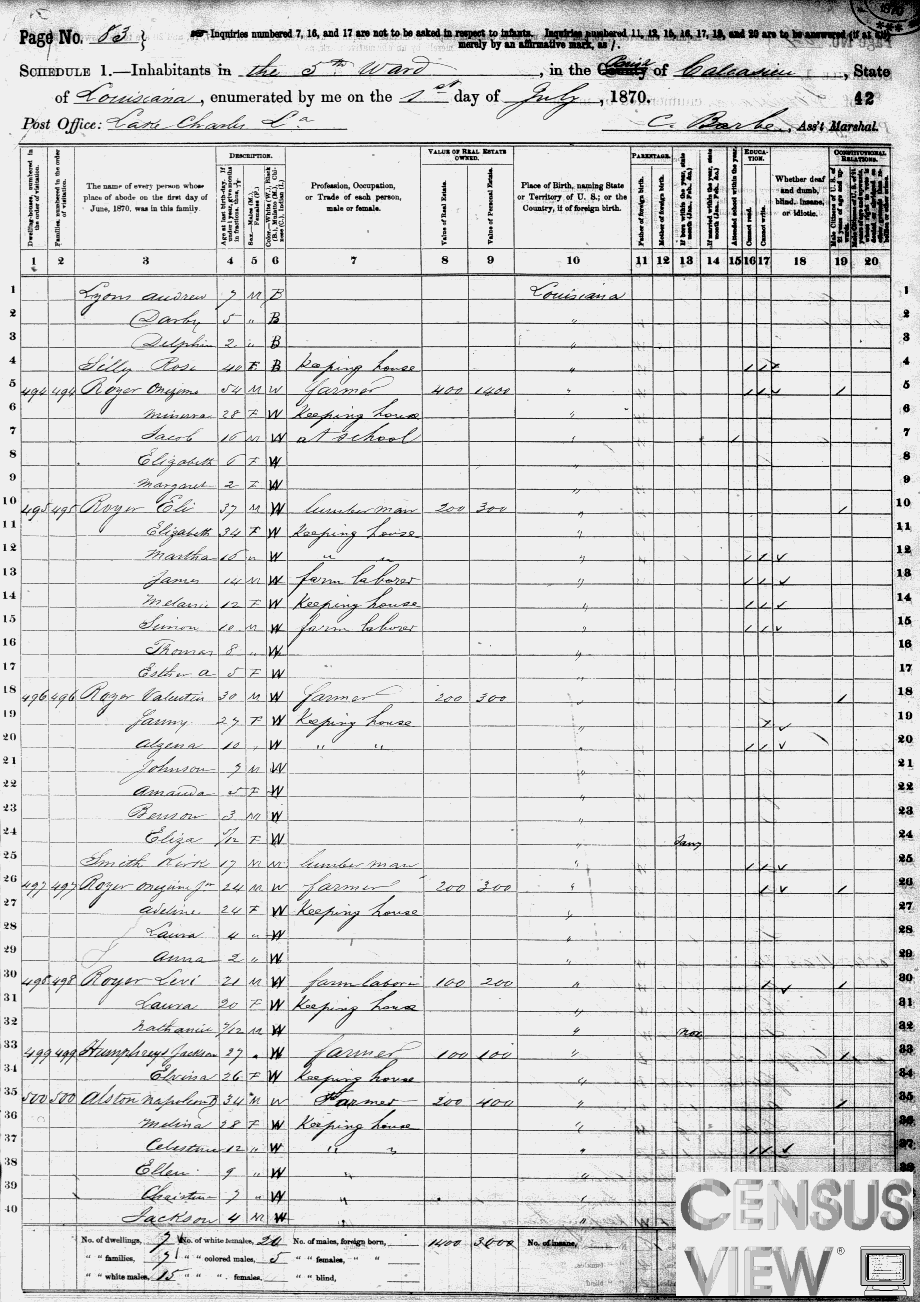 Page No. 83
Inquiries numbered 7, 16, and 17 are not to be asked in respect to infants. Inquiries numbered 11, 12, 15, 16, 17, 19, and 20 are to be answered (if at all) merely by an affirmative mark, as /.
SCHEDULE 1.—Inhabitants in the 5th Ward, in the County of Calcasieu, State
of Louisiana, enumerated by me on the 1st day of July, 1870. 42
Post Office: Lake Charles La C. Barbe, Ass't Marshal.
DESCRIPTION. VALUE OF REAL ESTATE OWNED. PARENTAGE. EDUCATION. CONSTITUTIONAL RELATIONS.
Dwelling-houses numbered in the order of visitation.
Families numbered in the order of visitation.
The name of every person whose place of abode on the first day of June, 1870, was in this family.
Profession, Occupation, or Trade of each person, male or female.
Value of Real Estate.
Value of Personal Estate.
Place of Birth, naming State or Territory of U. S.; or the Country, if of foreign birth.
Father of foreign birth.
Mother of foreign birth.
Attended school within the year.
Cannot read.
Cannot write.
Whether deaf and dumb, blind, insane, or idiotic.
1 2 3 4 5 6 7 8 9 10 11 12 13 14 15 16 17 18 19 20
1 Lyons Andrew 7 M B Louisiana 1
2 Darby 5 " B " 2
3 Delphin 2 " B " 3
4 Silly Rose 40 F B Keeping house " / / 4
5 494 494 Royer Onezime 54 M W farmer 400 1400 " / / / 5
6 Minerva 28 F W Keeping house " 6
7 Jacob 16 M W at school " / 7
8 Elizabeth 6 F W " 8
9 Margaret 2 F W " 9
10 495 495 Royer Eli 37 M W lumber man 200 300 " / 10
11 Elizabeth 34 F W Keeping house " 11
12 Martha 16 " W " " " / / 12
13 James 14 M W farm laborer " / / 13
14 Melanie 12 F W Keeping house " / / 14
15 Simon 10 M W farm laborer " / / 15
16 Thomas 8 " W " 16
17 Esther A 5 F W " 17
18 496 496 Royer Valentin 30 M W farmer 200 300 " / 18
19 Fanny 27 F W Keeping house " / 19
20 Alzena 10 " W " " " / / 20
21 Johnson 7 M W " 21
22 Amanda 5 F W " 22
23 Benson 3 M W " 23
24 Eliza /12 F W " Jany 24
25 Smith 17 M lumber man " / / 25
26 497 497 Royer Onezime Jr 24 M W farmer 200 300 " / / 26
27 Adeline 24 F W Keeping house " 27
28 Laura 4 " W " 28
29 Anna 2 " W " 29
30 498 498 Royer Levi 21 M W farm labore 100 200 " / / 30
31 Laura 20 F W Keeping house " 31
32 Nathaniel /12 M W " Nov 32
33 499 499 Humphreys Jackson 27 " W farmer 100 100 " / 33
34 Elvina 26 F W Keeping house " 34
35 500 500 Alston Napoleon B 34 M W Farmer 200 400 " / 35
36 Melina 28 F W Keeping house " 36
37 Celestine 12 " W " " " / / 37
38 Ellen 9 " W " " 38
39 Christina 7 " W " "
40 Jackson 4 M W " "
No. of dwellings, 7 No. of white females, 20 No. of males, foreign born, 1400 3000 No. of insane,
" " families, 7 " " colored males, 5 " " females, " "
" " white males, 15 " " " females, " " blind,
CENSUS
VIEW ®